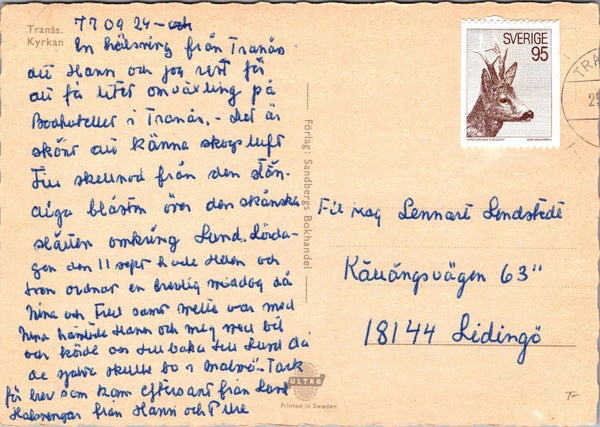 Tranås.
Kyrkan
77 09 24
En hälsning från Tranås
dit Hann och jag rest för
att få litet omväxling på
Badhotellet i Tranås. - Det är
skönt att känna skogsluft
till skellnad från den stän-
diga blåsten över den skånska
slätten omkring Lund. Lörda-
gen den 11 sept hade Helen och
Sven ordnat en trevlig middag då
Nina och samt var med
Nina hämtade Hann och mig med bil
och körde oss tillbaka till Lund då
de själva skulle bo i Malmö - Tack
för brev som kom efter oss från Lund
Hälsningar från Hann och
Förlag: Sandbergs Bokhandel
SVERIGE
95
TRA
Fil Mag Lennart Lindstedt
Källängsvägen 63"
18144 Lidingö
ULTRA
Printed in Sweden